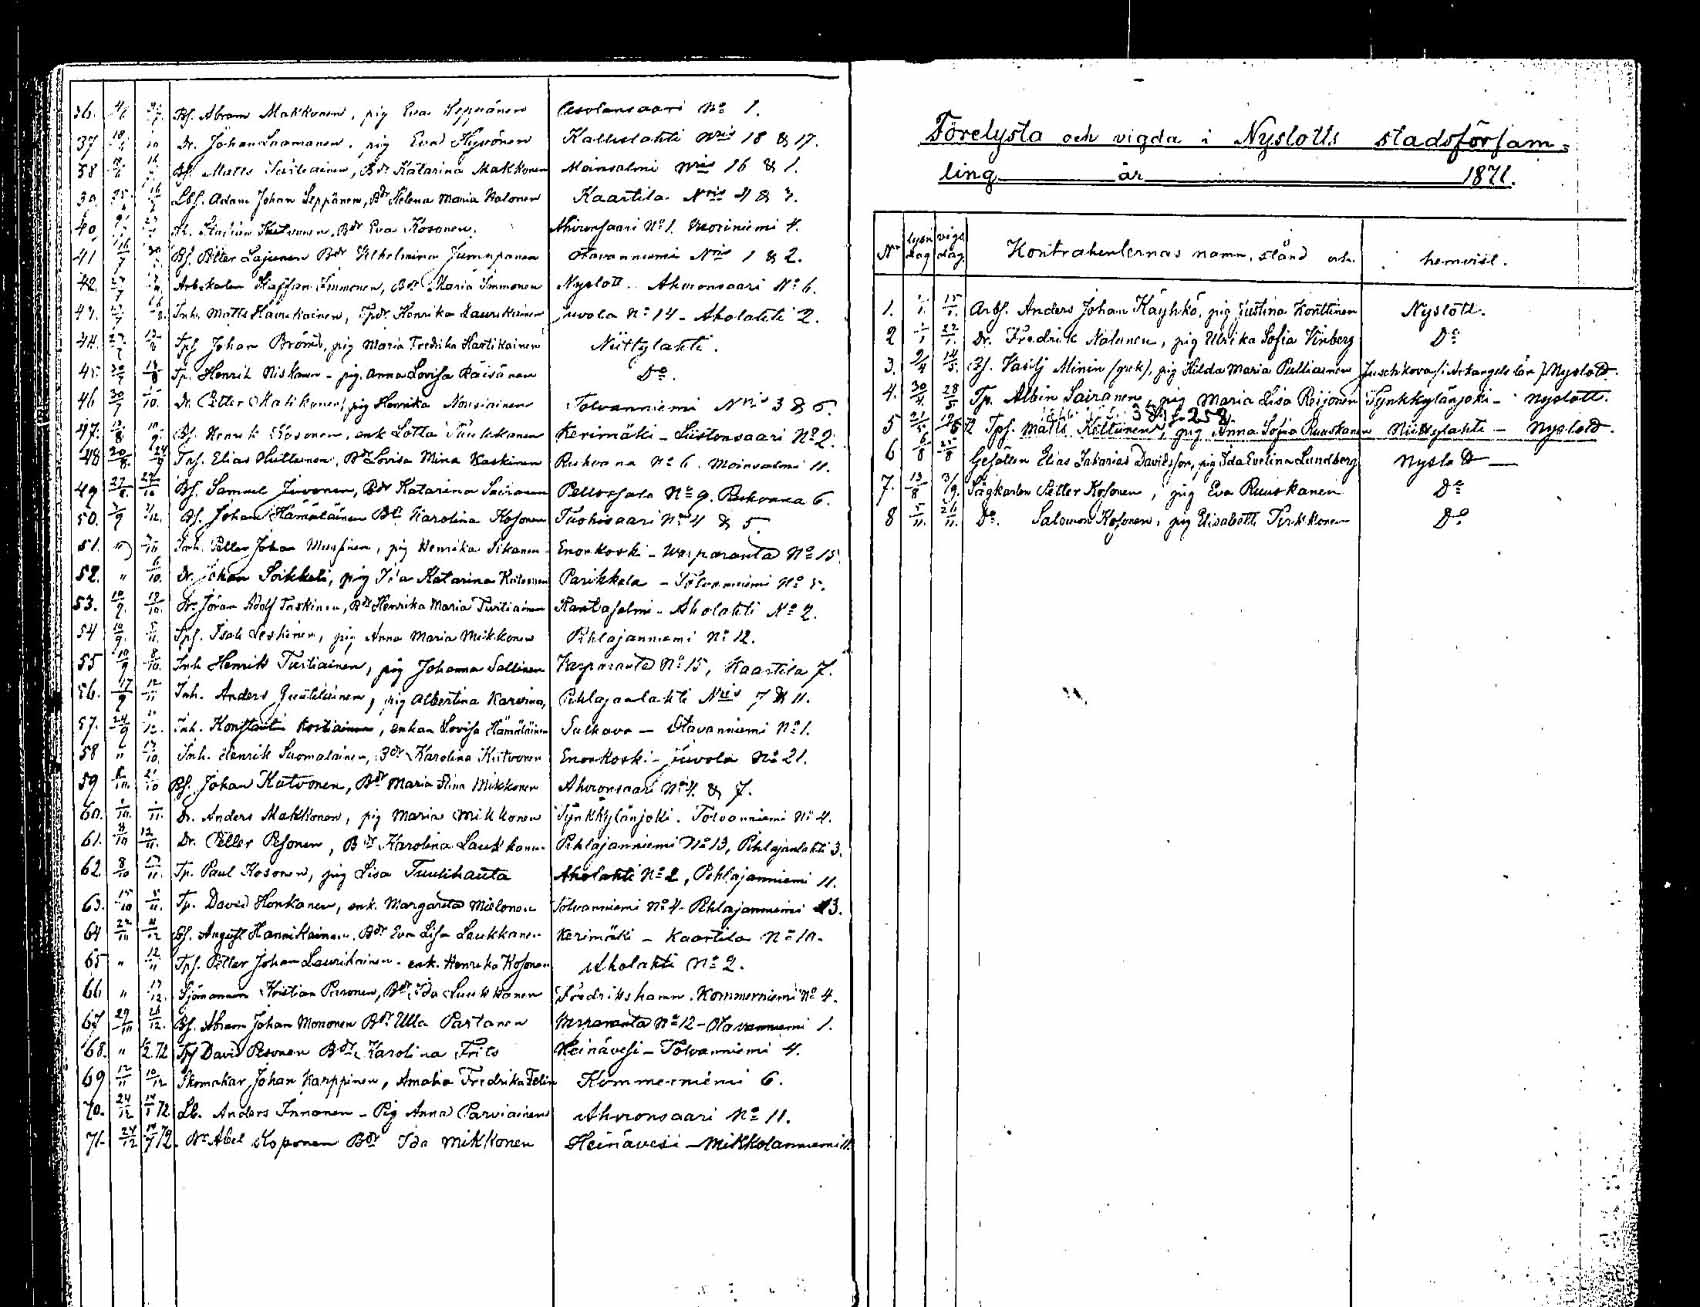 36. Bf. Abram Makkonen, pig Eva Seppänen No 1.
37 Dr. Johan Laamanen, pig Eva Hyvönen Kallislahti Nris 18 & 17.
38 Bf. Matts Turtiainen, Bdr Katarina Makkonen Moinsalmi Nris 16 & 1.
39. Lbf. Adam Johan Seppänen, Bdr Helena Maria Kalonen Kaartila Nris 4 & 3.
40. Bdr Eva Kosonen. Ahvonsaari No 1. 4.
41 Bf. Petter Lajunen Bdr Vilhelmina Jumppanen Otavanniemi Nris 1 & 2.
42 Arbskarlen Staffan Immonen, Bdr Maria Immonen Nyslott. Ahvonsaari No 6.
43. Inh. Matts Laurikainen, Tpdr Henrika Laurikainen Juvola No 14 - Aholahti 2.
44. Tpf. Johan Bröms, pig Maria Fredrika Hartikainen Niittylahti.
45. Tp. Henrik Niskanen - pig. Anna Lovisa Räisänen Do.
46 30/7 Dr. Petter Matikainen, pig Henrika Nousiainen Tolvanniemi Nris 3 & 6.
47. 13/8 Bf. Henrik Kosonen, enk. Lotta Tuukkanen Kerimäki - Liistonsaari No 2.
48 20/8 Tpf. Elias Huttunen, Bdr Lovisa Mina Kaskinen Ruhvana No 6. Moinsalmi 11.
49 27/8 Bf. Samuel Juvonen, Bdr Katarina Sairanen Pellossalo No 9. Ruhvana 6.
50. Bf. Johan Hämäläinen Bdr Karolina Kosonen Tuohisaari No 4 & 5
51. " Inh. Petter Johan Mustinen, pig Henrika Sikanen Enonkoski - Varparanta No 15
52. " Dr. Johan Soikkeli, pig Ida Katarina Parikkala - Tolvanniemi No 5.
53. 10/9 Dr. Johan Adolf Taskinen, Bdr Henrika Maria Turtiainen Rantasalmi - Aholahti No 2.
54 10/9. 5/11. Tpf. Isak Leskinen, pig Anna Maria Mikkonen Pihlajanniemi No 12.
55 10/9 8/10. Inh Henrik Turtiainen, pig Johanna Sallinen Varparanta No 15, Kaartila 7.
56. 17/9 12/11 Inh. Anders Juutilainen, pig Albertina Karvina, Pihlajanlahti Nris 7 & 11.
57. 24/9 Inh. Konstantin Kostiainen, enkan Lovisa Hämäläinen Sulkava - Otavanniemi No 1.
58 " Inh. Henrik Suomalainen, Bdr Karolina Kutvonen Enonkoski - Juvola No 21.
59 Bf. Johan Kutvonen, Bdr Maria Stina Mikkonen Ahvonsaari No 4. & 7.
60. Dr. Anders Makkonen, pig Maria Mikkonen Tynkkylänjoki. Tolvanniemi No 4.
61. 12/11. Dr. Petter Pesonen, Bdr Karolina Laukkanen Pihlajanniemi No 13, Pihlajanlahti 3.
62 8/10 Tp. Paul Kosonen, pig Lisa Tuulihauta Aholahti No 2, Pihlajanniemi 11.
63. 15/10 Tp. David Honkanen, enk. Margareta Mielonen Tolvanniemi No 4 - Pihlajanniemi 13.
64 22/10 Bf. August Hannikainen, Bdr Eva Lisa Laukkanen Kerimäki - Kaartila No 10.
65 " 12/11 Tpf. Petter Johan Laurikainen - enk. Henrika Kosonen Aholahti No 2.
66 " 17/12. Sjömannen Kristian Puronen, Bdr Ida Luukkanen Fredrikshamn. Kommerniemi No 4.
67 29/10 26/12. Bf. Abram Johan Mononen Bdr. Ulla Partanen Varparanta No 12 - Otavanniemi 1.
68. " Tpf David Pesonen Bdr. Karolina Frits Heinävesi - Tolvanniemi 4.
69 12/11 10/12 Skomakar Johan Karppinen, Amalia Fredrika Felin Kommerniemi 6.
70. 24/12 72 Lb. Anders Innanen - Pig Anna Parviainen Ahvonsaari No 11.
71. 24/12 72. Dr Abel Koponen Bdr Ida Mikkonen Heinävesi - Mikkolanniemi
Förelysta och vigda i Nyslotts stadsförsam=
ling år 1871.
No lysn dag vigs dag. Kontrahenternas namn, stånd och hemvist.
1. 15/1. Arbf. Anders Johan Käyhkö, pig Justina Konttinen Nyslott.
2 1/1 22/1. Dr. Fredrik Nalunen, pig Ulrika Sofia Vinberg Do
3. 2/4 14/5. Bf. Vasilj Minin (grek), pig Hilda Maria Pulliainen Juschkova (i Arkangels län) Nyslott.
4. 30/4 28/5 Tp. Albin Sairanen, pig Maria Lisa Roijonen Tynkkylänjoki - Nyslott.
5 Tpf. Matts Keltunen, pig Anna Sofia Ruuskanen Niittylahti - Nyslott.
6 6/8 Gesällen Elias Sakarias Davidsson, pig Ida Evelina Lundberg Nyslott
7. 13/8 3/9. Sågkarlen Petter Kosonen, pig Eva Ruuskanen Do
8 5/11. 26/11. Do. Salomon Kosonen, pig Elisabeth Pirkkonen Do